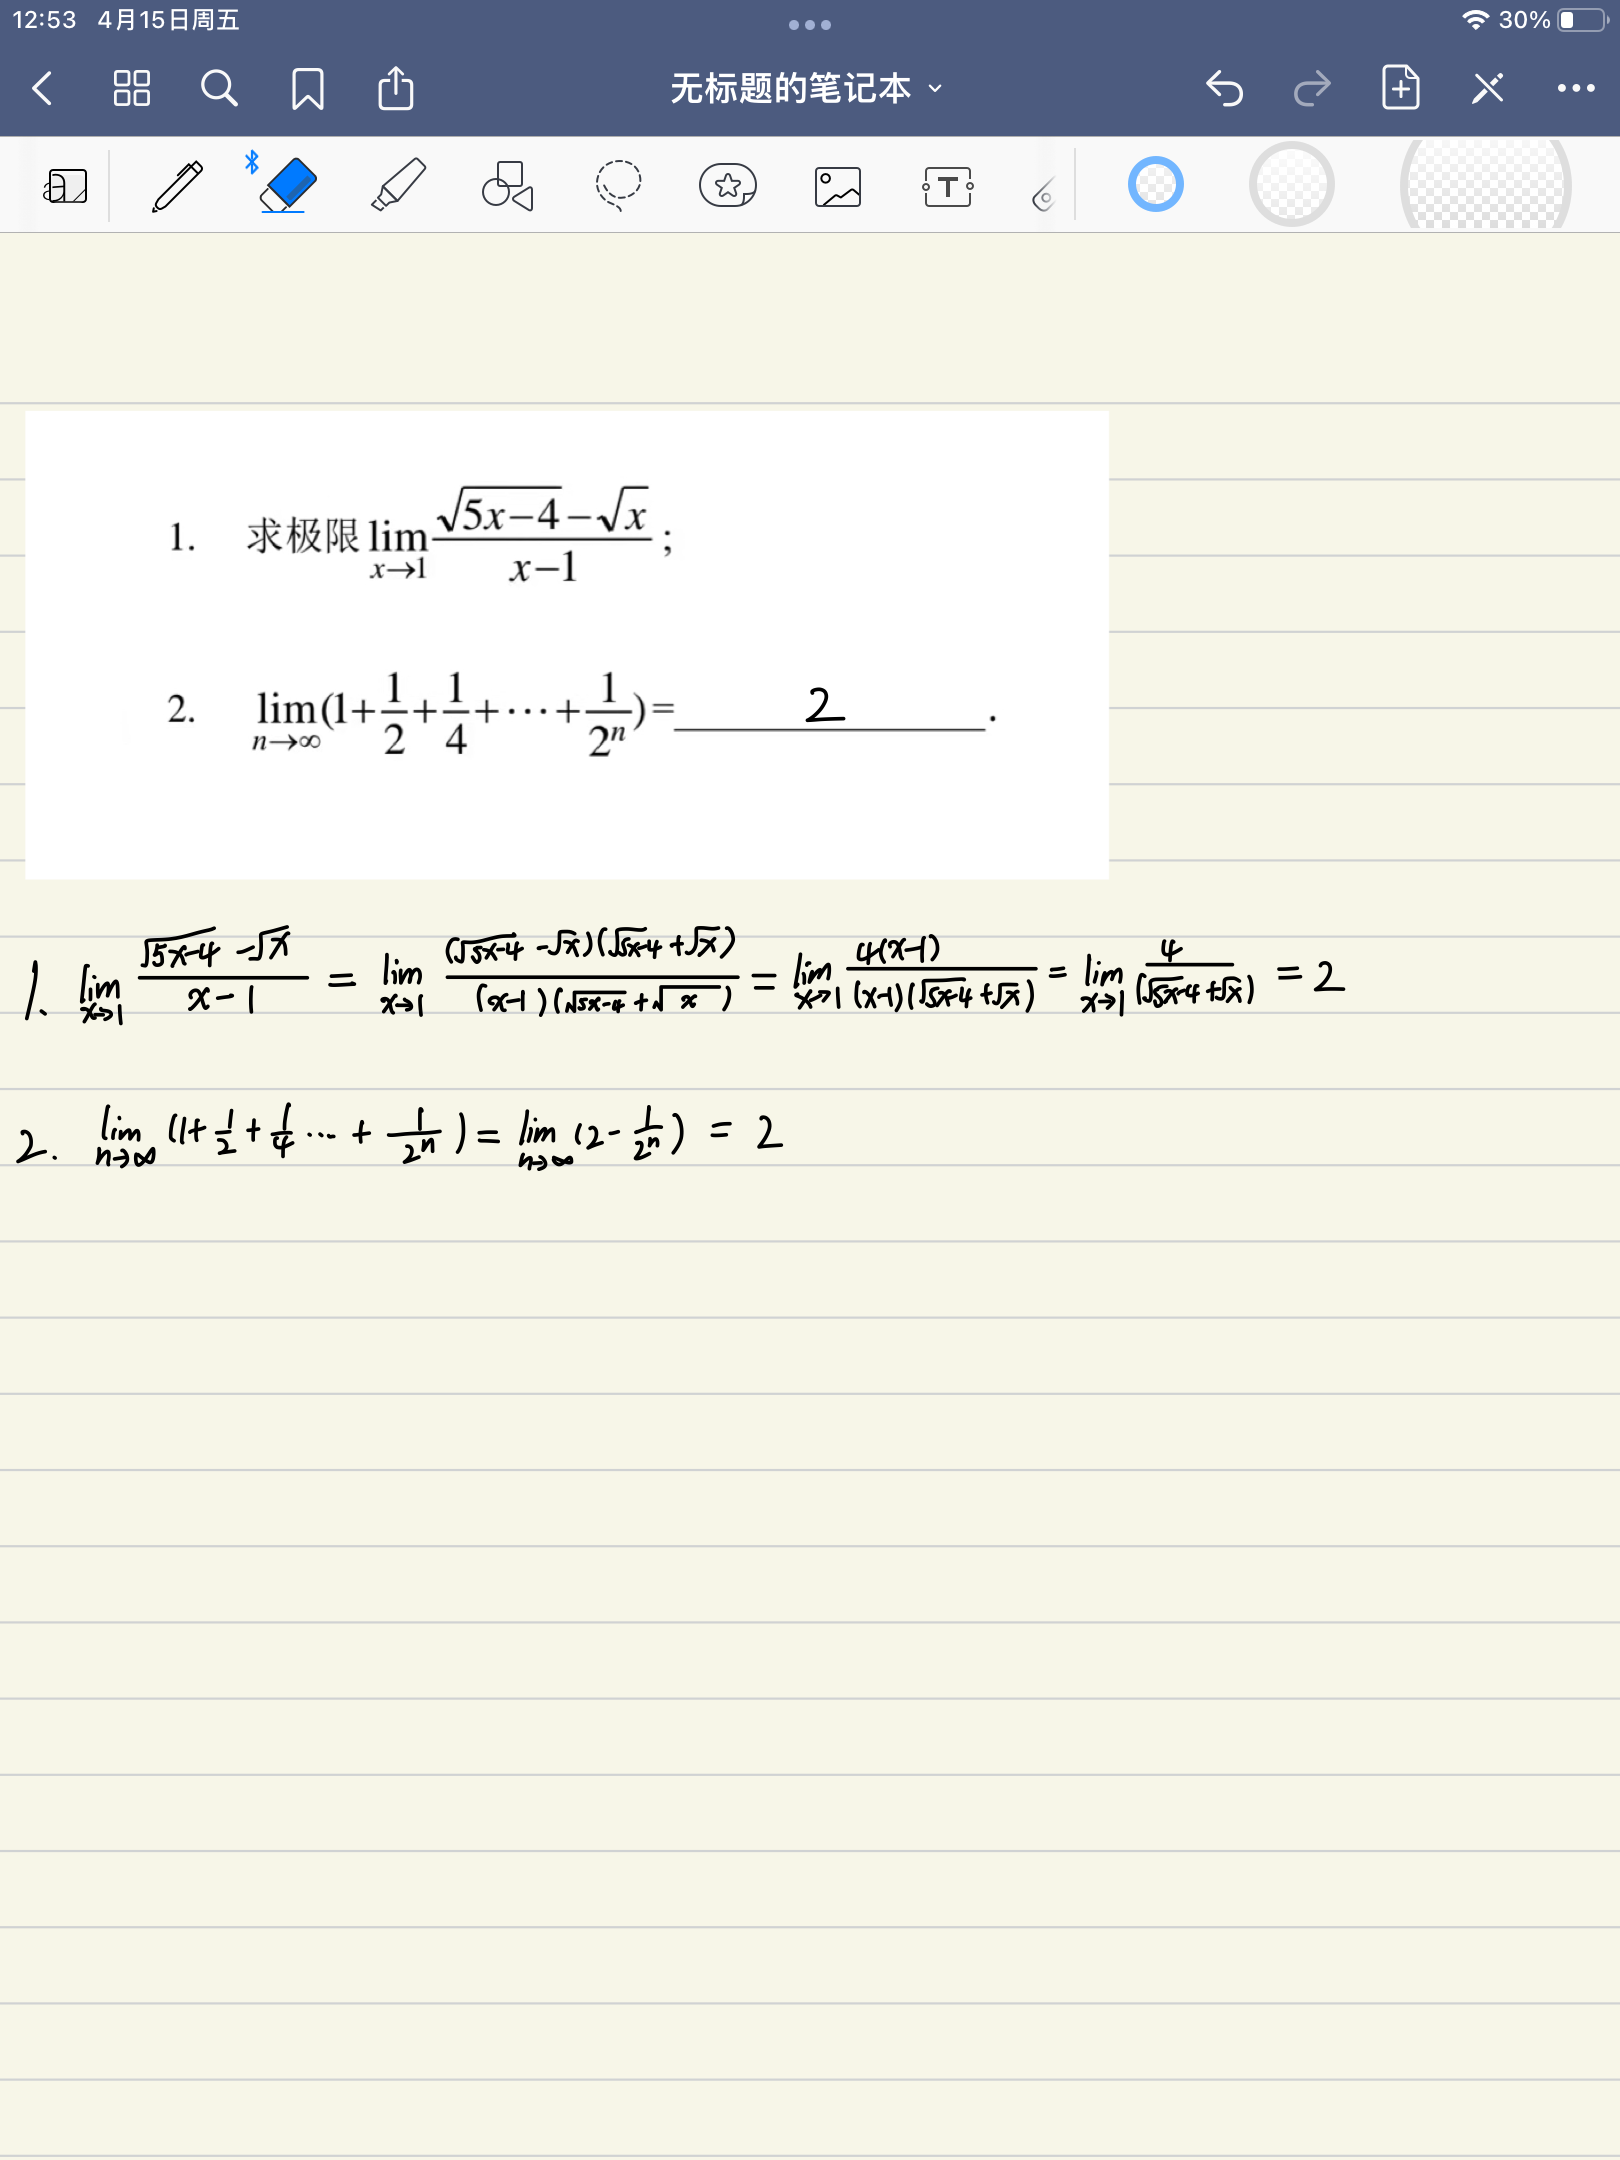 12:53 4月15日周五 30%
无标题的笔记本
T
1. 求极限 lim_{x→1} (√(5x−4) − √x)/(x−1) ;
2. lim_{n→∞} (1 + 1/2 + 1/4 + ⋯ + 1/2ⁿ) = 2 .
1. lim_{x→1} (√(5x−4) − √x)/(x−1) = lim_{x→1} ((√(5x−4) − √x)(√(5x−4) + √x))/((x−1)(√(5x−4) + √x)) = lim_{x→1} (4(x−1))/((x−1)(√(5x−4) + √x)) = lim_{x→1} 4/(√(5x−4) + √x) = 2
2. lim_{n→∞} (1 + 1/2 + 1/4 ⋯ + 1/2ⁿ) = lim_{n→∞} (2 − 1/2ⁿ) = 2